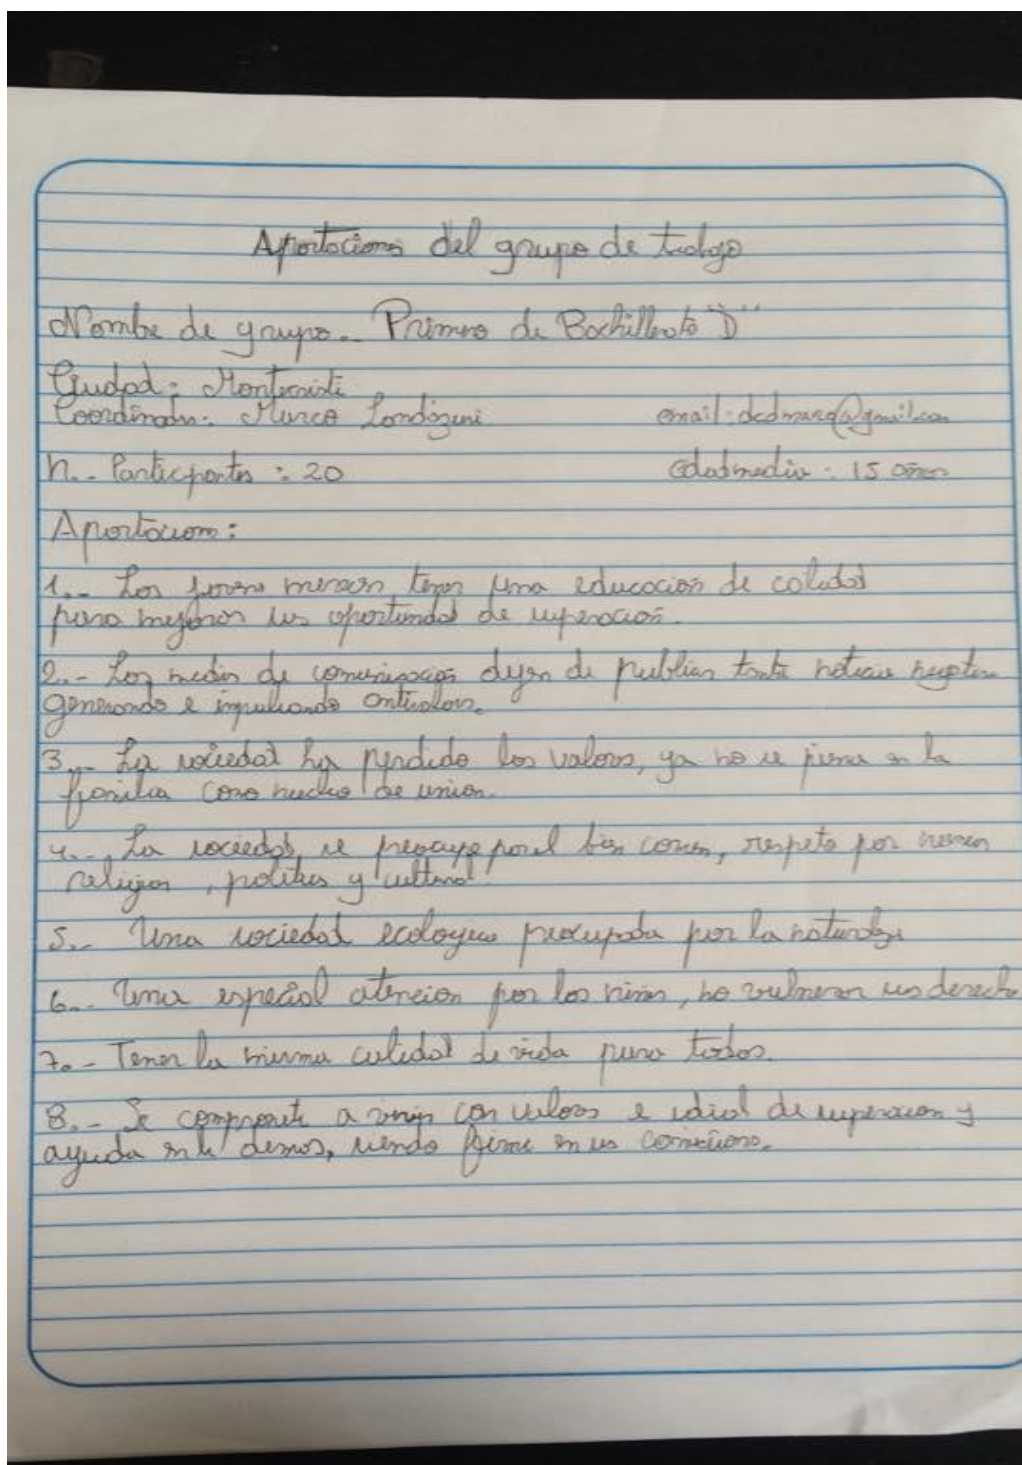 Aportaciones del grupo de trabajo
Nombre de grupo.- Primero de Bachillerato "D"
Ciudad: Montecristi
Coordinador: Marco email:
N.- Participantes : 20 edad media : 15 años
Aportacion:
1.- Los jovenes merecen tener una educación de calidad
para mejorar sus oportunidad de superación.
2.- Los medios de comunicación dejen de publicar tanta noticias
generando e impulsando
3.- La sociedad ha perdido los valores, ya no se piensa en la
familia como nucleo de union.
4.- La sociedad se preocupe por el bien comun, respeto por
religion, politica y cultural.
5.- Una sociedad ecologica preocupada por la naturaleza
6.- Una especial atencion por los niños, no vulneran sus derechos
7.- Tener la misma calidad de vida para todos.
8.- Se compromete a vivir con valores e ideal de superacion y
ayuda en los demas, siendo firme en sus convicciones.